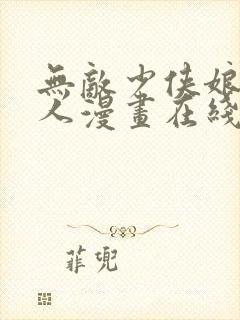 無敵少俠娘
人漫畫在綫
菲兜